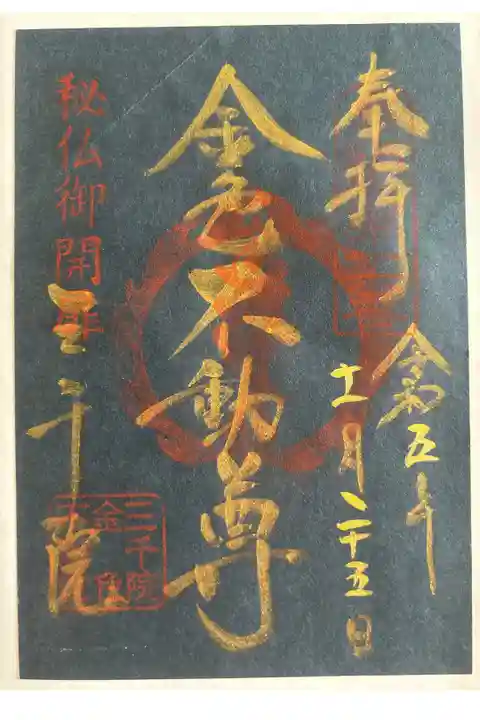 奉拝
令和五年
十一月二十五日
金色不動尊
秘仏御開扉
三千院
三千院